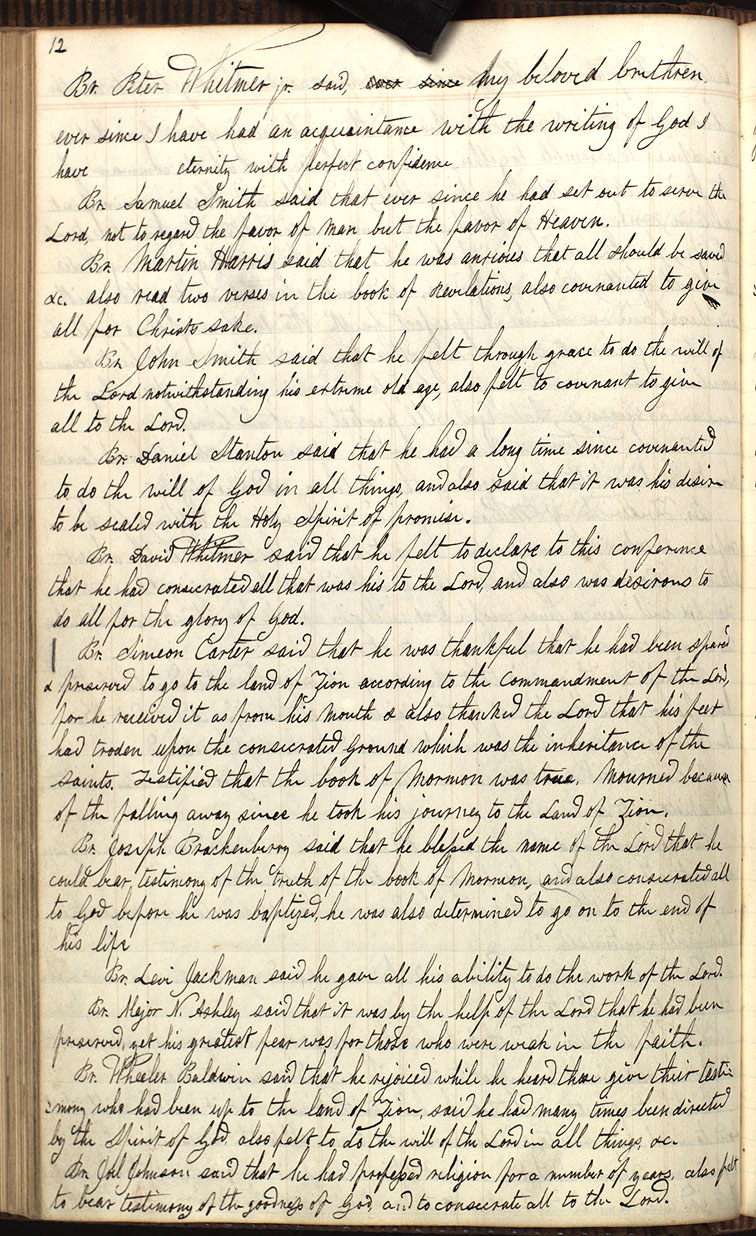 12
Br. Peter Whitmer jr. said, ever since My beloved brethren
ever since I have had an acquaintance with the writing of God I
have eternity with perfect confidence
Br. Samuel Smith said that ever since he had set out to serve the
Lord, not to regard the favor of man but the favor of Heaven.
Br. Martin Harris said that he was anxious that all should be saved
&c. also read two verses in the book of Revelations, also covenanted to give
all for Christs sake.
Br. John Smith said that he felt through grace to do the will of
the Lord notwithstanding his extreme old age, also felt to covenant to give
all to the Lord.
Br. Daniel Stanton said that he had a long time since covenanted
to do the will of God in all things, and also said that it was his desire
to be sealed with the Holy Spirit of promise.
Br. David Whitmer said that he felt to declare to this conference
that he had consecrated all that was his to the Lord, and also was desirous to
do all for the glory of God.
Br. Simeon Carter said that he was thankful that he had been spared
& preserved to go to the land of Zion according to the commandment of the Lord,
for he received it as from his mouth & also thanked the Lord that his feet
had troden upon the consecrated ground which was the inheritance of the
saints. Testified that the book of Mormon was true. Mourned because
of the falling away since he took his journey to the Land of Zion.
Br. Joseph Brackenberry said that he blessed the name of the Lord that he
could bear testimony of the truth of the book of Mormon, and also consecrated all
to God before he was baptized, he was also determined to go on to the end of
his life
Br. Levi Jackman said he gave all his ability to do the work of the Lord.
Br. Major N. Ashley said that it was by the help of the Lord that he had been
preserved, yet his greatest fear was for those who were weak in the faith.
Br. Wheeler Baldwin said that he rejoiced while he heard those give their testi-
=mony who had been up to the land of Zion, said he had many times been directed
by the Spirit of God also felt to do the will of the Lord in all things, &c.
Br. Joel Johnson said that he had professed religion for a number of years, also felt
to bear testimony of the goodness of God, and to consecrate all to the Lord.